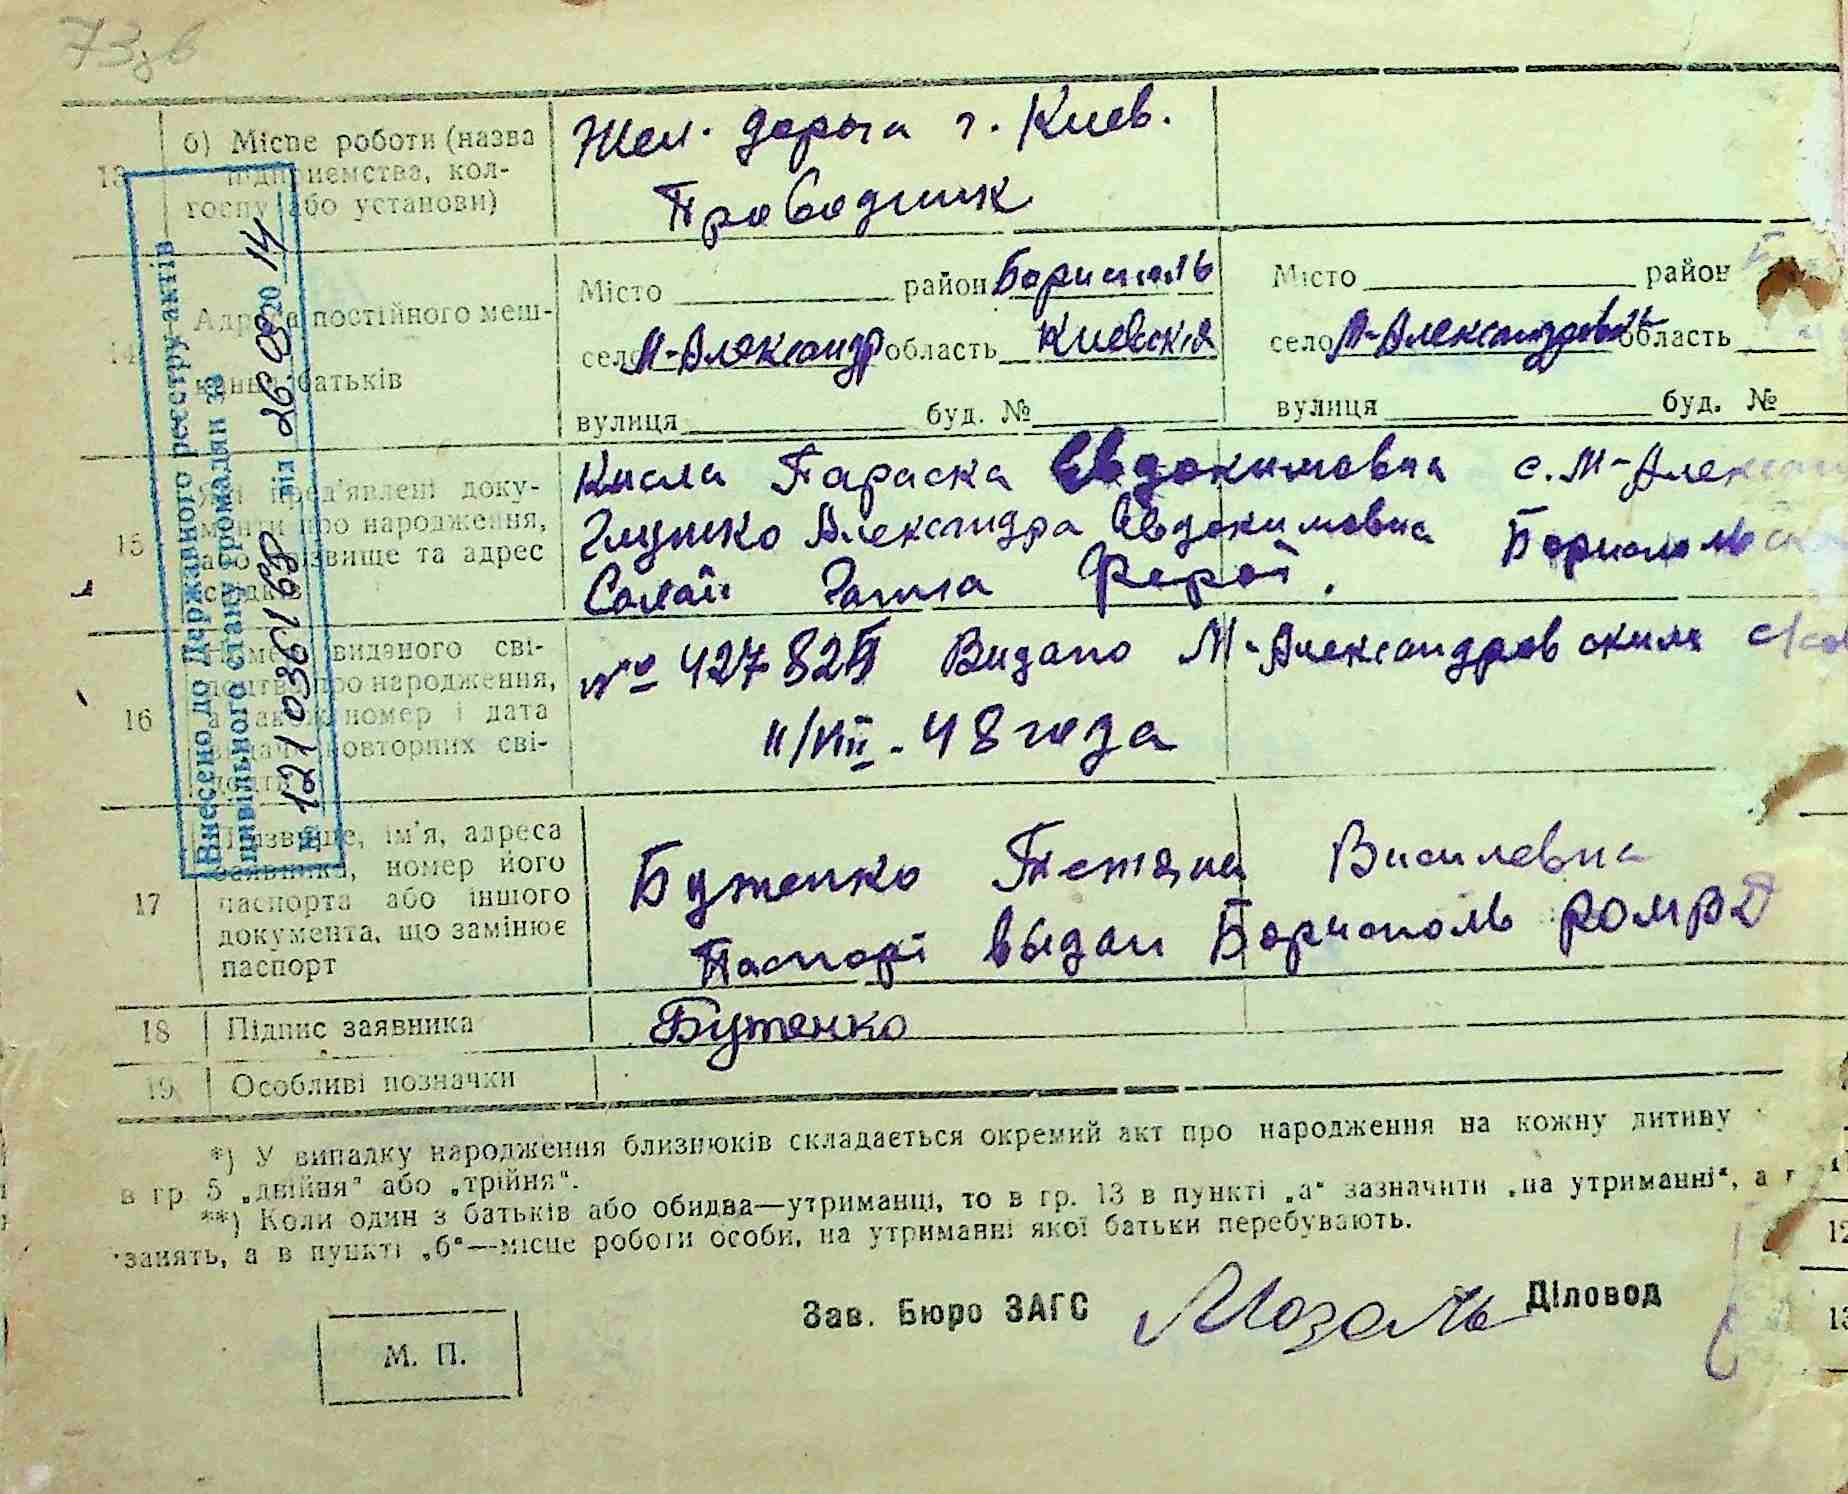 73зв
13 б) Місце роботи (назва
підприємства, кол-
госпу або установи)
Жел. дорога г. Киев.
Проводник
14 Адреса постійного меш-
кання батьків
Місто район Борисполь
село М-Александр область Киевская
вулиця буд. №
Місто район
село М-Александровка область
вулиця буд. №
15 Які пред'явлені доку-
менти про народження,
або прізвище та адрес
свідків
Кисла Параска Евдокимовна с. М-Алексан
Глушко Александра Евдокимовна Борисполь
16 Номер виданого сві-
доцтва про народження,
а також номер і дата
видачі повторних сві-
доцтв
№ 427 Видано М-Александровским с/сов
11/VIII - 48 года
17 Прізвище, ім'я, адреса
заявника, номер його
паспорта або іншого
документа, що замінює
паспорт
Бутенко Тетяна Василевна
Паспорт выдан Борисполь
18 Підпис заявника
Бутенко
19 Особливі позначки
Внесено до Державного реєстру актів
цивільного стану громадян за
№ 121036168 від 26 09 20 14
*) У випадку народження близнюків складається окремий акт про народження на кожну дитину
в гр 5 „двійня" або „трійня".
**) Коли один з батьків або обидва—утриманці, то в гр. 13 в пункті „а" зазначити „на утриманні", а
занять, а в пункті „б"—місце роботи особи, на утриманні якої батьки перебувають.
Зав. Бюро ЗАГС Мозоль Діловод
М. П.
12
13